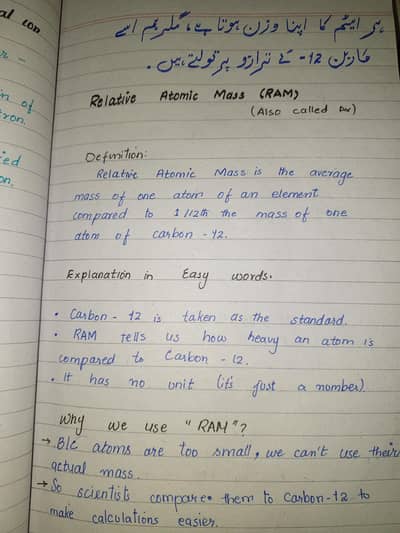 al con
ہر ایٹم کا اپنا وزن ہوتا ہے، مگر ہم اسے
کاربن 12- کے ترازو پر تولتے ہیں۔
Relative Atomic Mass (RAM)
(Also called
Definition:
Relative Atomic Mass is the average
mass of one atom of an element
compared to 1/12th the mass of one
atom of carbon-12.
Explanation in Easy words.
• Carbon-12 is taken as the standard.
• RAM tells us how heavy an atom is
compared to Carbon-12.
• It has no unit (it's just a number)
Why we use "RAM"?
→ B/c atoms are too small, we can't use their
actual mass.
→ So scientists compare them to Carbon-12 to
make calculations easier.